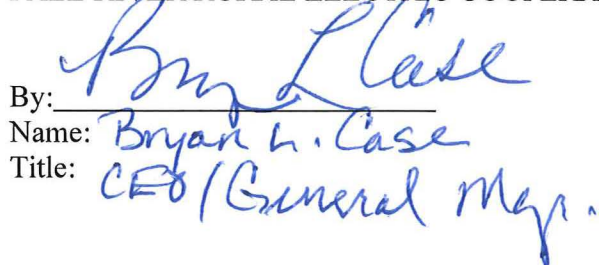 By: Bryan L Case
Name: Bryan L. Case
Title: CEO/General Mgr.